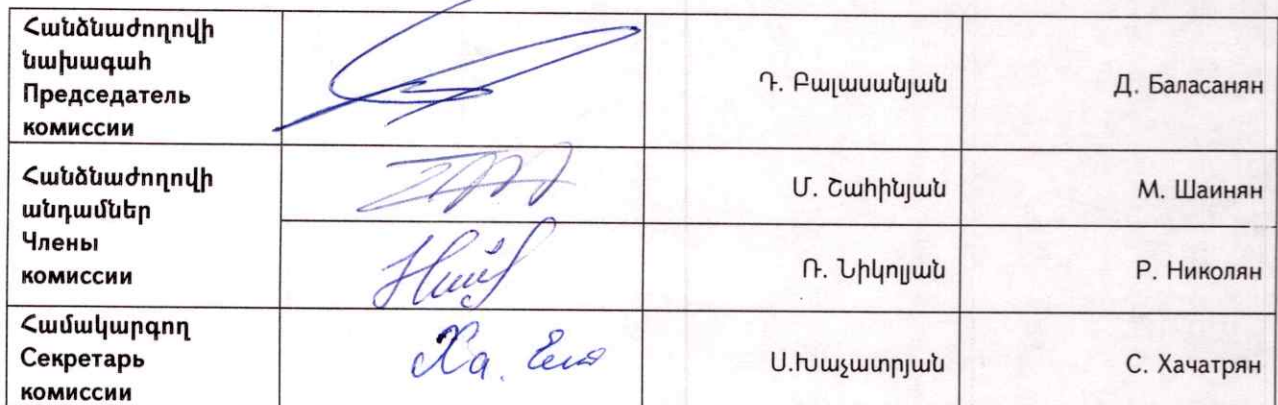 Հանձնաժողովի
նախագահ
Председатель
комиссии
Դ. Բալասանյան
Д. Баласанян
Հանձնաժողովի
անդամներ
Члены
комиссии
Մ. Շահինյան
М. Шаинян
Ռ. Նիկոլյան
Р. Николян
Համակարգող
Секретарь
комиссии
Ս.Խաչատրյան
С. Хачатрян